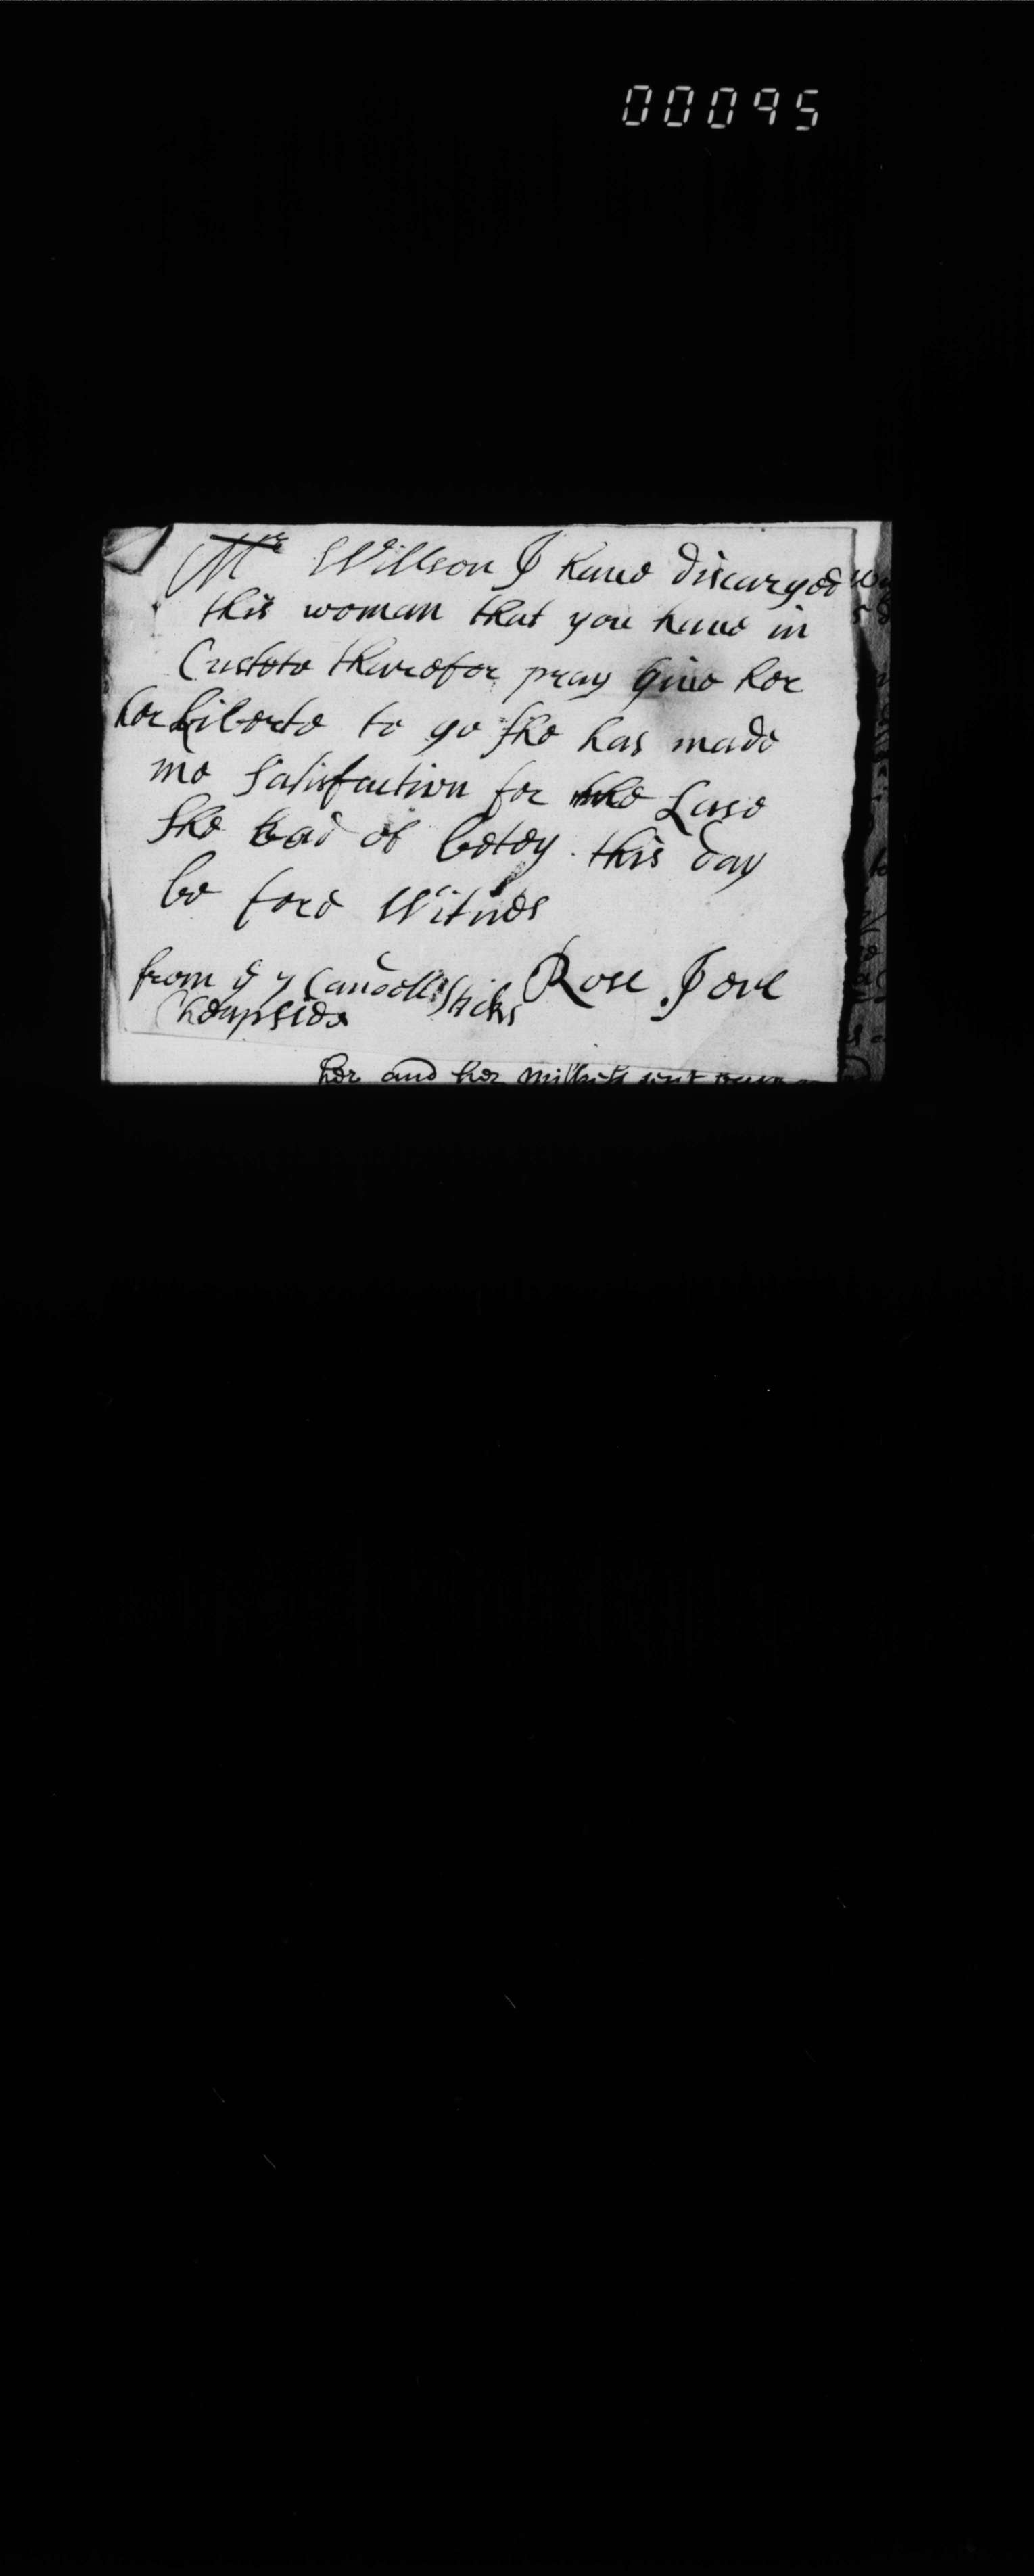 00095
Mr Willson I haue discarged
this woman that you haue in
Custote tharefor pray Giue her
her Liberte to go she has made
me Satisfaction for the Lase
She had of betey this day
be fore Witnes
Rose Jove
from ye 7 Candellsticks
Cheapside
her and her